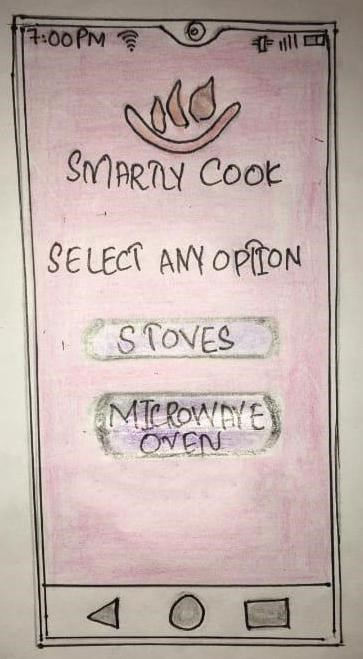 7:00PM
SMARTLY COOK
SELECT ANY OPTION
STOVES
MICROWAVE
OVEN